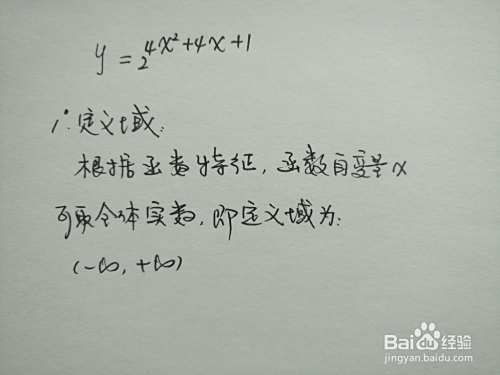 y = 2^{4x²+4x+1}
1°.定义域:
根据函数特征,函数自变量x
可取全体实数,即定义域为:
(-∞,+∞)
Baidu经验
jingyan.baidu.com